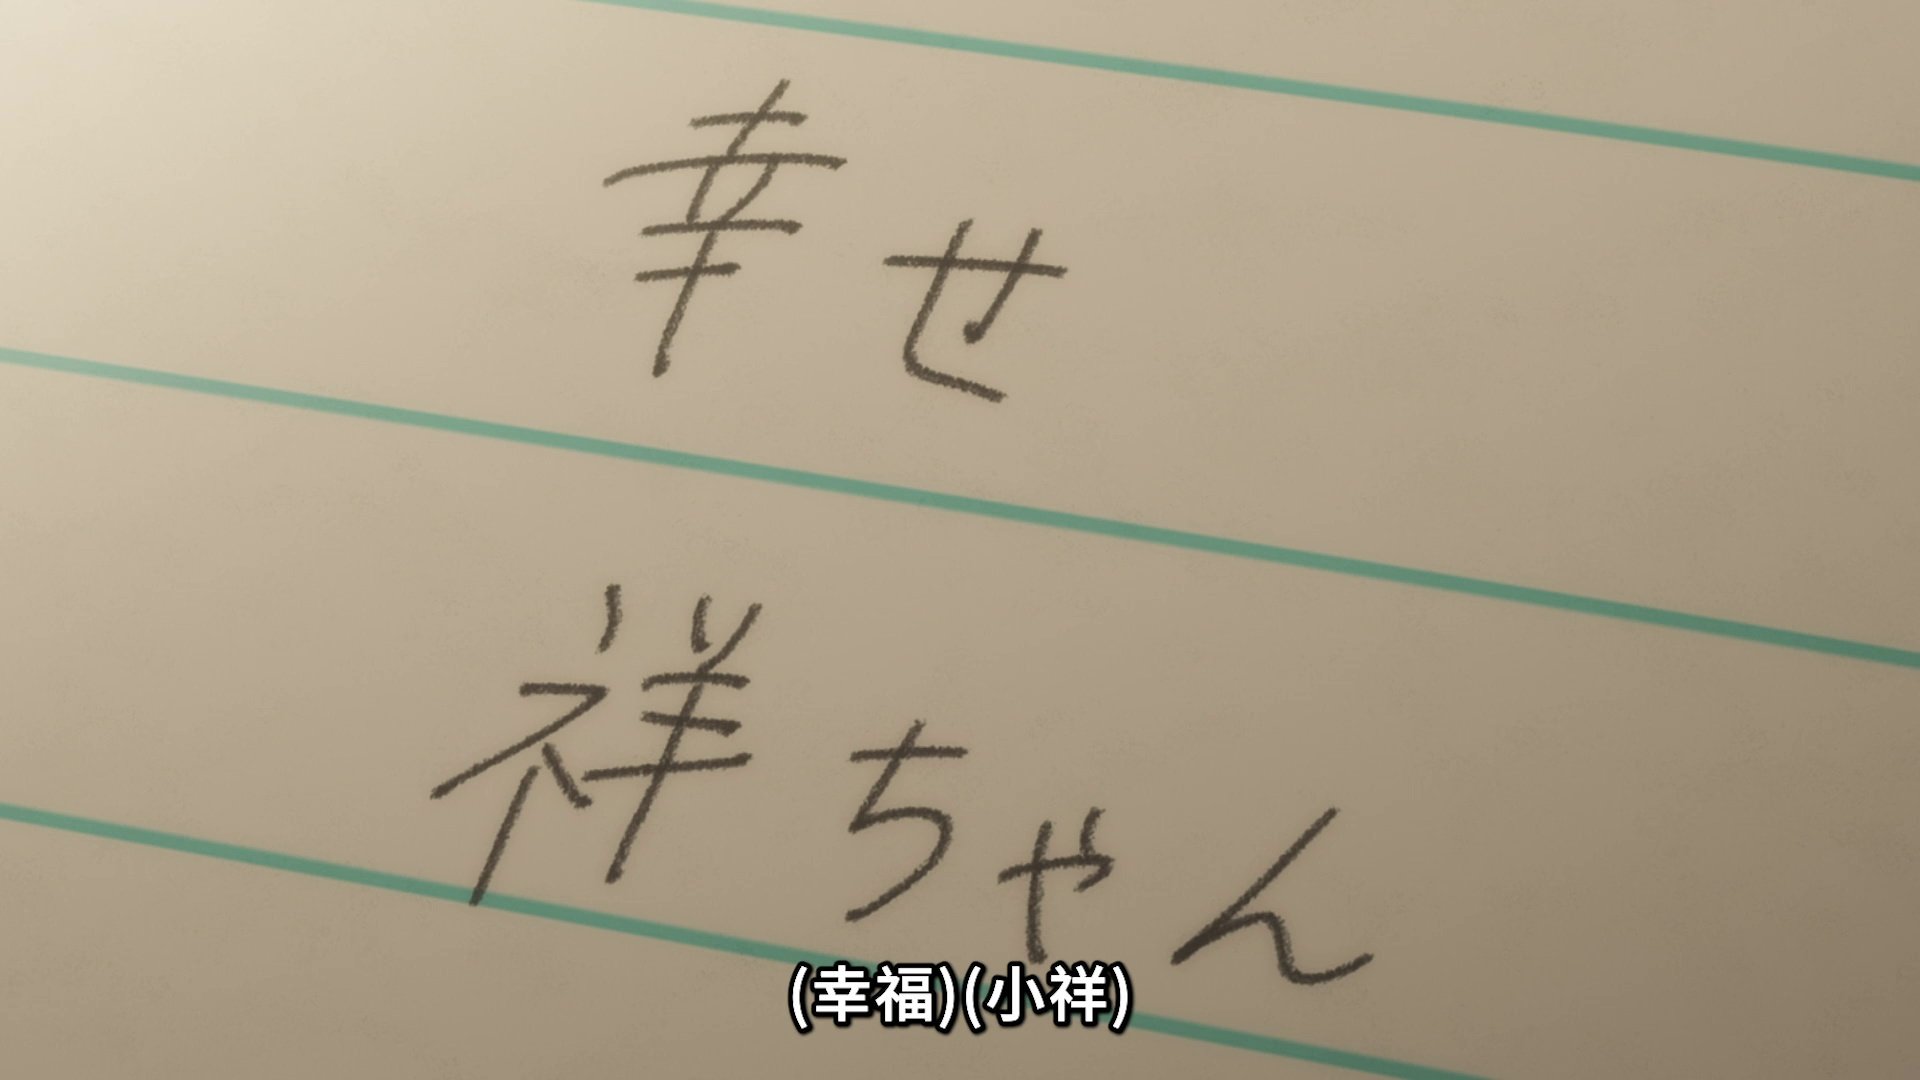 幸せ
祥ちゃん
(幸福)(小祥)